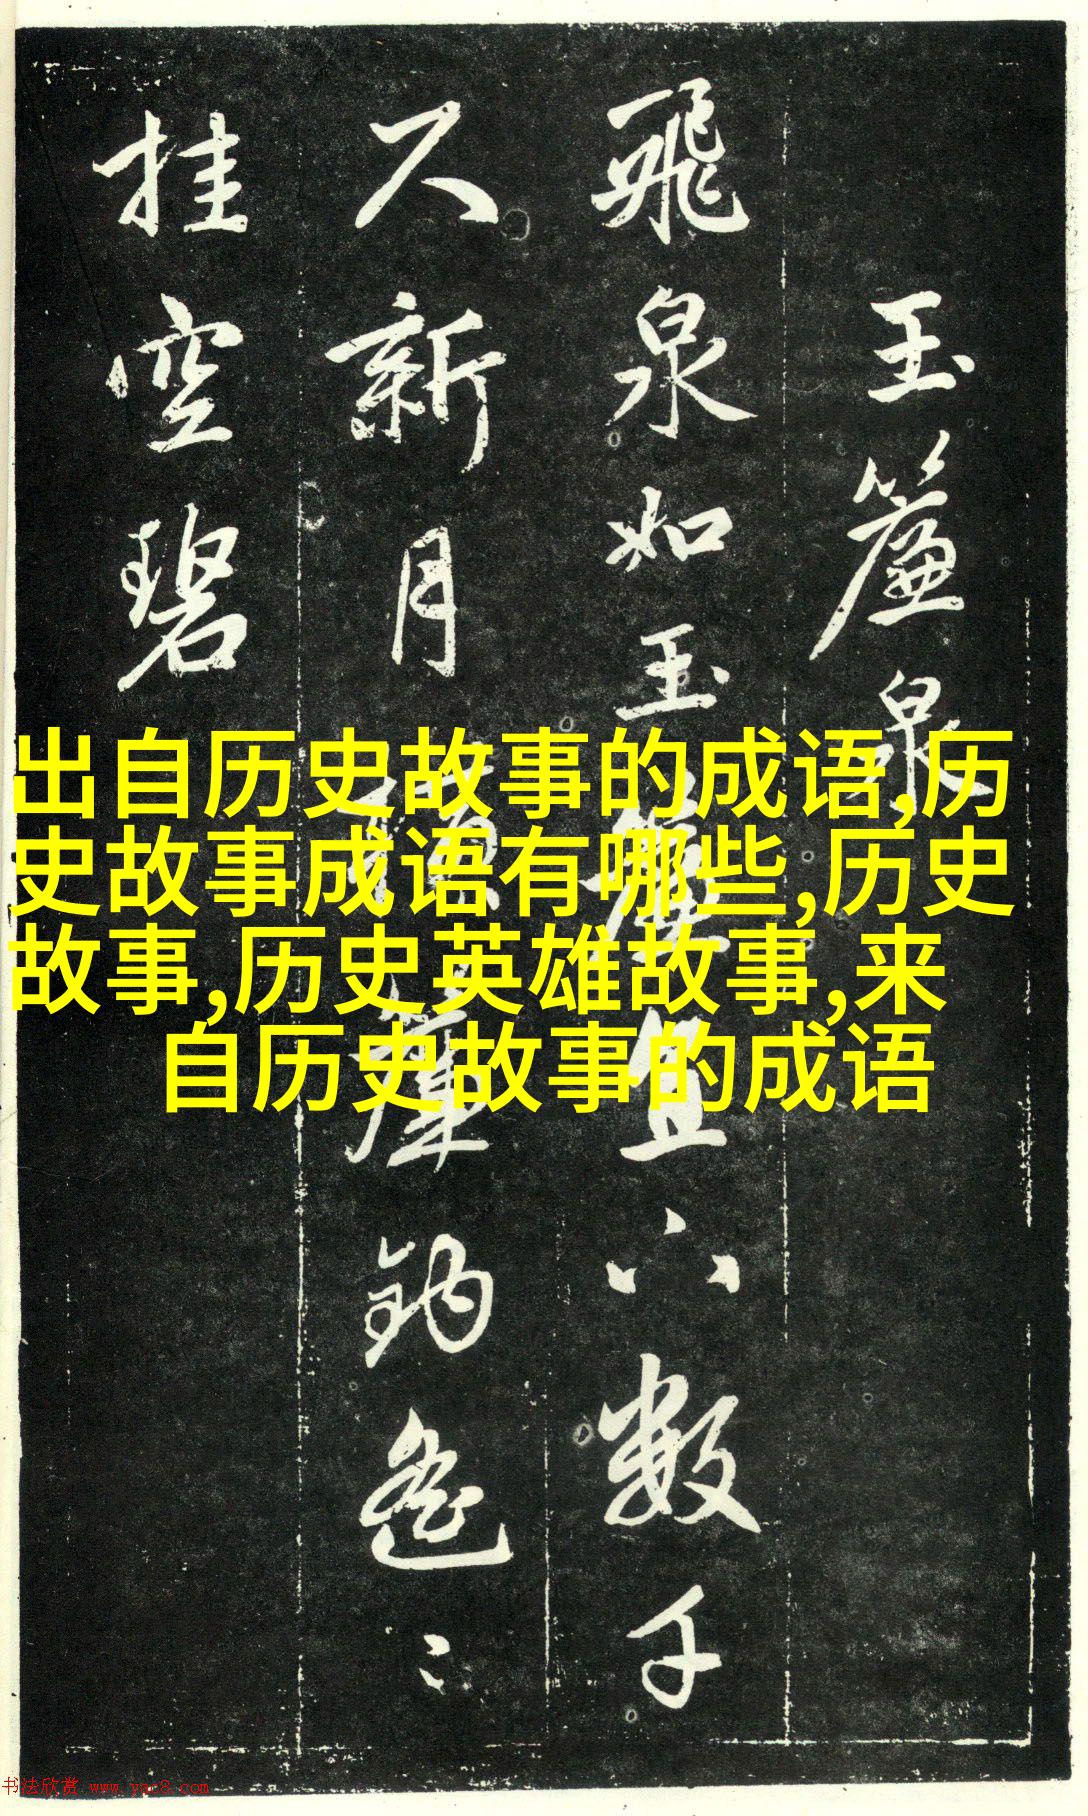 玉簾泉
飛泉如玉簾直下數千
尺新月簾鉤遥〻
挂空碧
出自历史故事的成语,历
史故事成语有哪些,历史
故事,历史英雄故事,来
自历史故事的成语
书法欣赏 www.yac8.com